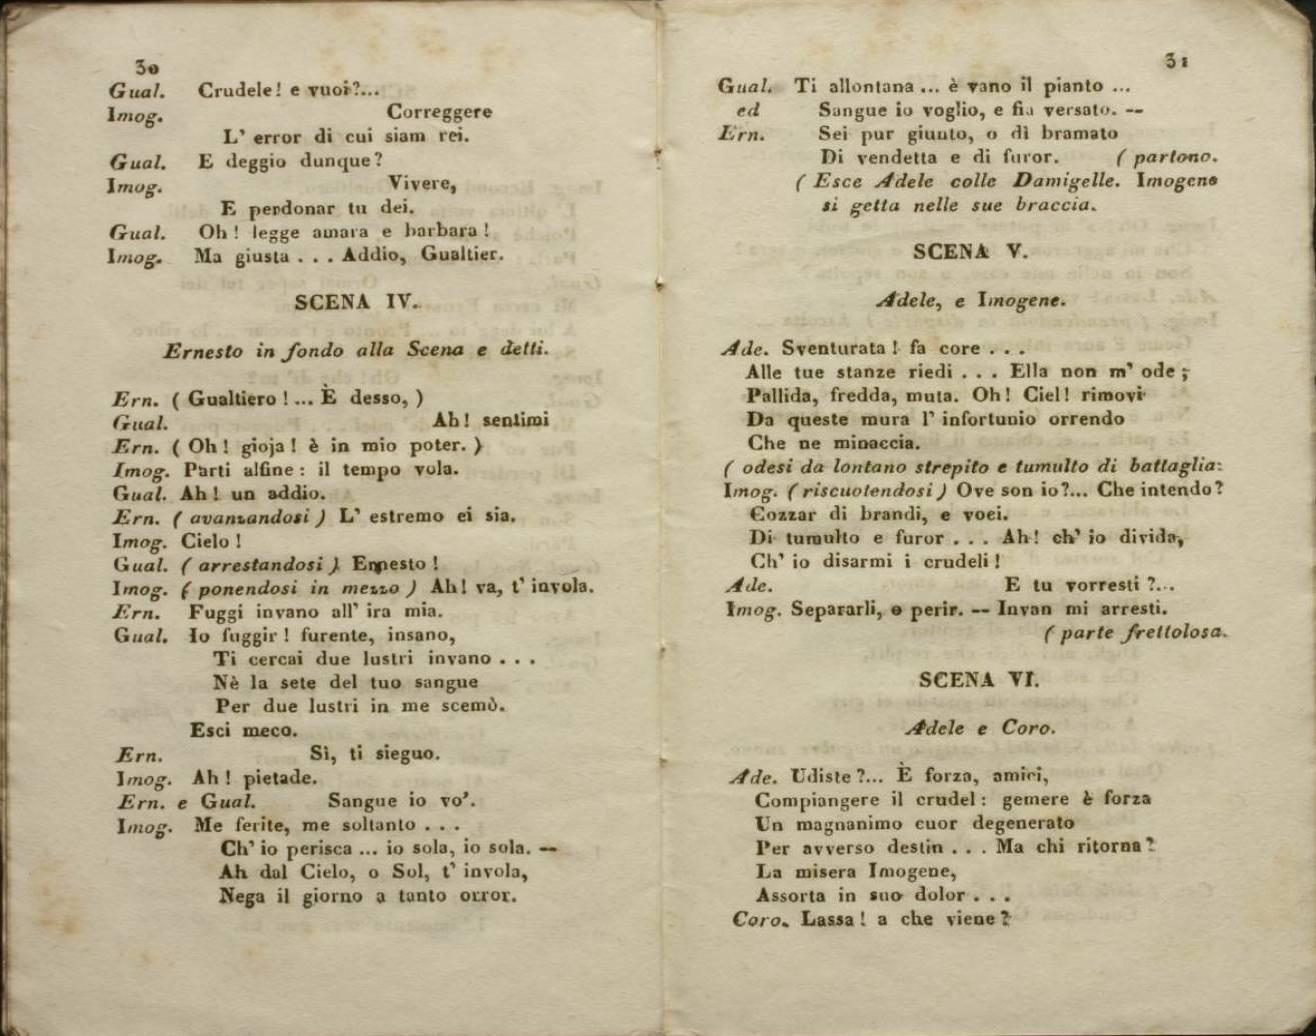 30
Gual. Crudele! e vuoi?...
Imog. Correggere
L' error di cui siam rei.
Gual. E deggio dunque?
Imog. Vivere,
E perdonar tu dei.
Gual. Oh! legge amara e barbara!
Imog. Ma giusta . . . Addio, Gualtier.
SCENA IV.
Ernesto in fondo alla Scena e detti.
Ern. ( Gualtiero!... È desso, )
Gual. Ah! sentimi
Ern. ( Oh! gioja! è in mio poter. )
Imog. Parti alfine: il tempo vola.
Gual. Ah! un addio.
Ern. ( avanzandosi ) L' estremo ei sia.
Imog. Cielo!
Gual. ( arrestandosi ) Ernesto!
Imog. ( ponendosi in mezzo ) Ah! va, t' invola.
Ern. Fuggi invano all' ira mia.
Gual. Io fuggir! furente, insano,
Ti cercai due lustri invano . . .
Nè la sete del tuo sangue
Per due lustri in me scemò.
Esci meco.
Ern. Sì, ti sieguo.
Imog. Ah! pietade.
Ern. e Gual. Sangue io vo'.
Imog. Me ferite, me soltanto . . .
Ch' io perisca ... io sola, io sola. —
Ah dal Cielo, o Sol, t' invola,
Nega il giorno a tanto orror.
31
Gual. Ti allontana ... è vano il pianto ...
ed Sangue io voglio, e fia versato. —
Ern. Sei pur giunto, o dì bramato
Di vendetta e di furor. ( partono.
( Esce Adele colle Damigelle. Imogene
si getta nelle sue braccia.
SCENA V.
Adele, e Imogene.
Ade. Sventurata! fa core . . .
Alle tue stanze riedi . . . Ella non m' ode;
Pallida, fredda, muta. Oh! Ciel! rimovi
Da queste mura l' infortunio orrendo
Che ne minaccia.
( odesi da lontano strepito e tumulto di battaglia.
Imog. ( riscuotendosi ) Ove son io?... Che intendo?
Cozzar di brandi, e voci.
Di tumulto e furor . . . Ah! ch' io divida,
Ch' io disarmi i crudeli!
Ade. E tu vorresti?...
Imog. Separarli, o perir. — Invan mi arresti.
( parte frettolosa.
SCENA VI.
Adele e Coro.
Ade. Udiste?... È forza, amici,
Compiangere il crudel: gemere è forza
Un magnanimo cuor degenerato
Per avverso destin . . . Ma chi ritorna?
La misera Imogene,
Assorta in suo dolor . . .
Coro. Lassa! a che viene?